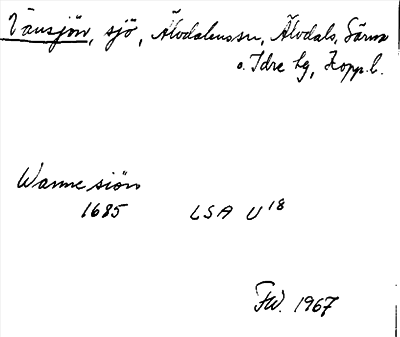 Vänsjön, sjö, Älvdalens sn, Älvdals, Särna
o. Idre tg, Kopp. l.
Wanne siön
1685 LSA U18
FW. 1967